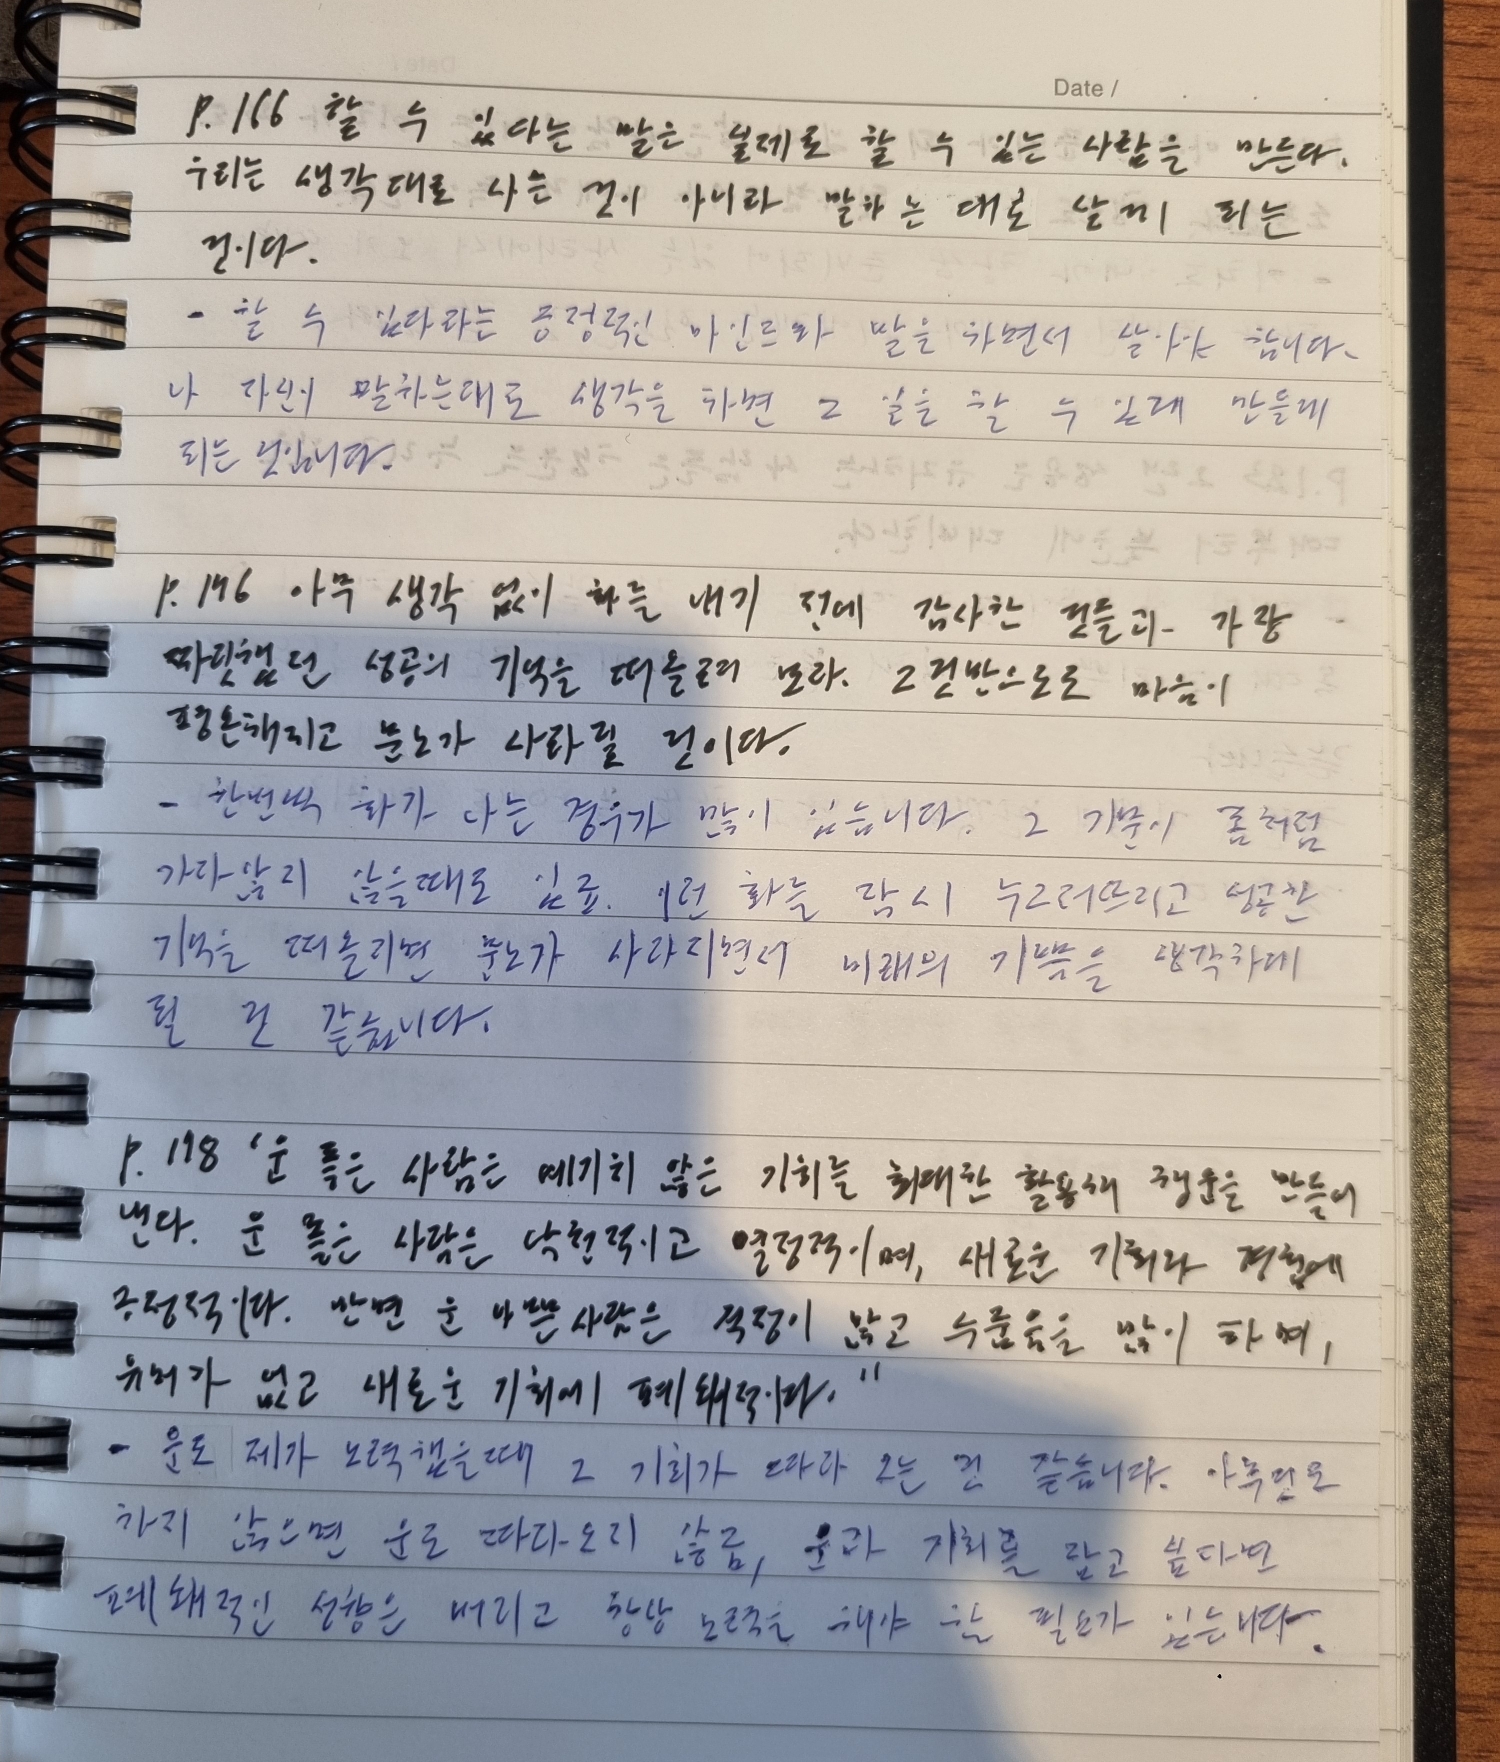 Date /
p.166 할 수 있다는 말은 실제로 할 수 있는 사람을 만든다.
우리는 생각대로 사는 것이 아니라 말하는 대로 살게 되는
것이다.
- 할 수 있다라는 긍정적인 마인드와 말을 하면서 살아야 합니다.
나 자신이 말하는대로 생각을 하면 그 일을 할 수 있게 만들게
되는 것입니다.
p.176 아무 생각 없이 화를 내기 전에 감사한 것들과 가장
짜릿했던 성공의 기억을 떠올려 보라. 그것만으로도 마음이
평온해지고 분노가 사라질 것이다.
- 한번씩 화가 나는 경우가 많이 있습니다. 그 기분이 좀처럼
가라앉지 않을때도 있죠. 이런 화를 잠시 누그러뜨리고 성공한
기억을 떠올리면 분노가 사라지면서 미래의 기쁨을 생각하게
될 것 같습니다.
p. 178 '운 좋은 사람은 예기치 않은 기회를 최대한 활용해 행운을 만들어
낸다. 운 좋은 사람은 낙천적이고 열정적이며, 새로운 기회와 경험에
긍정적이다. 반면 운 나쁜 사람은 걱정이 많고 수줍음을 많이 타며,
유머가 없고 새로운 기회에 폐쇄적이다."
- 운도 제가 노력했을때 그 기회가 따라 오는 것 같습니다. 아무런도
하지 않으면 운도 따라오지 않음, 운과 기회를 잡고 싶다면
폐쇄적인 성향은 버리고 항상 노력을 해야 할 필요가 있습니다.